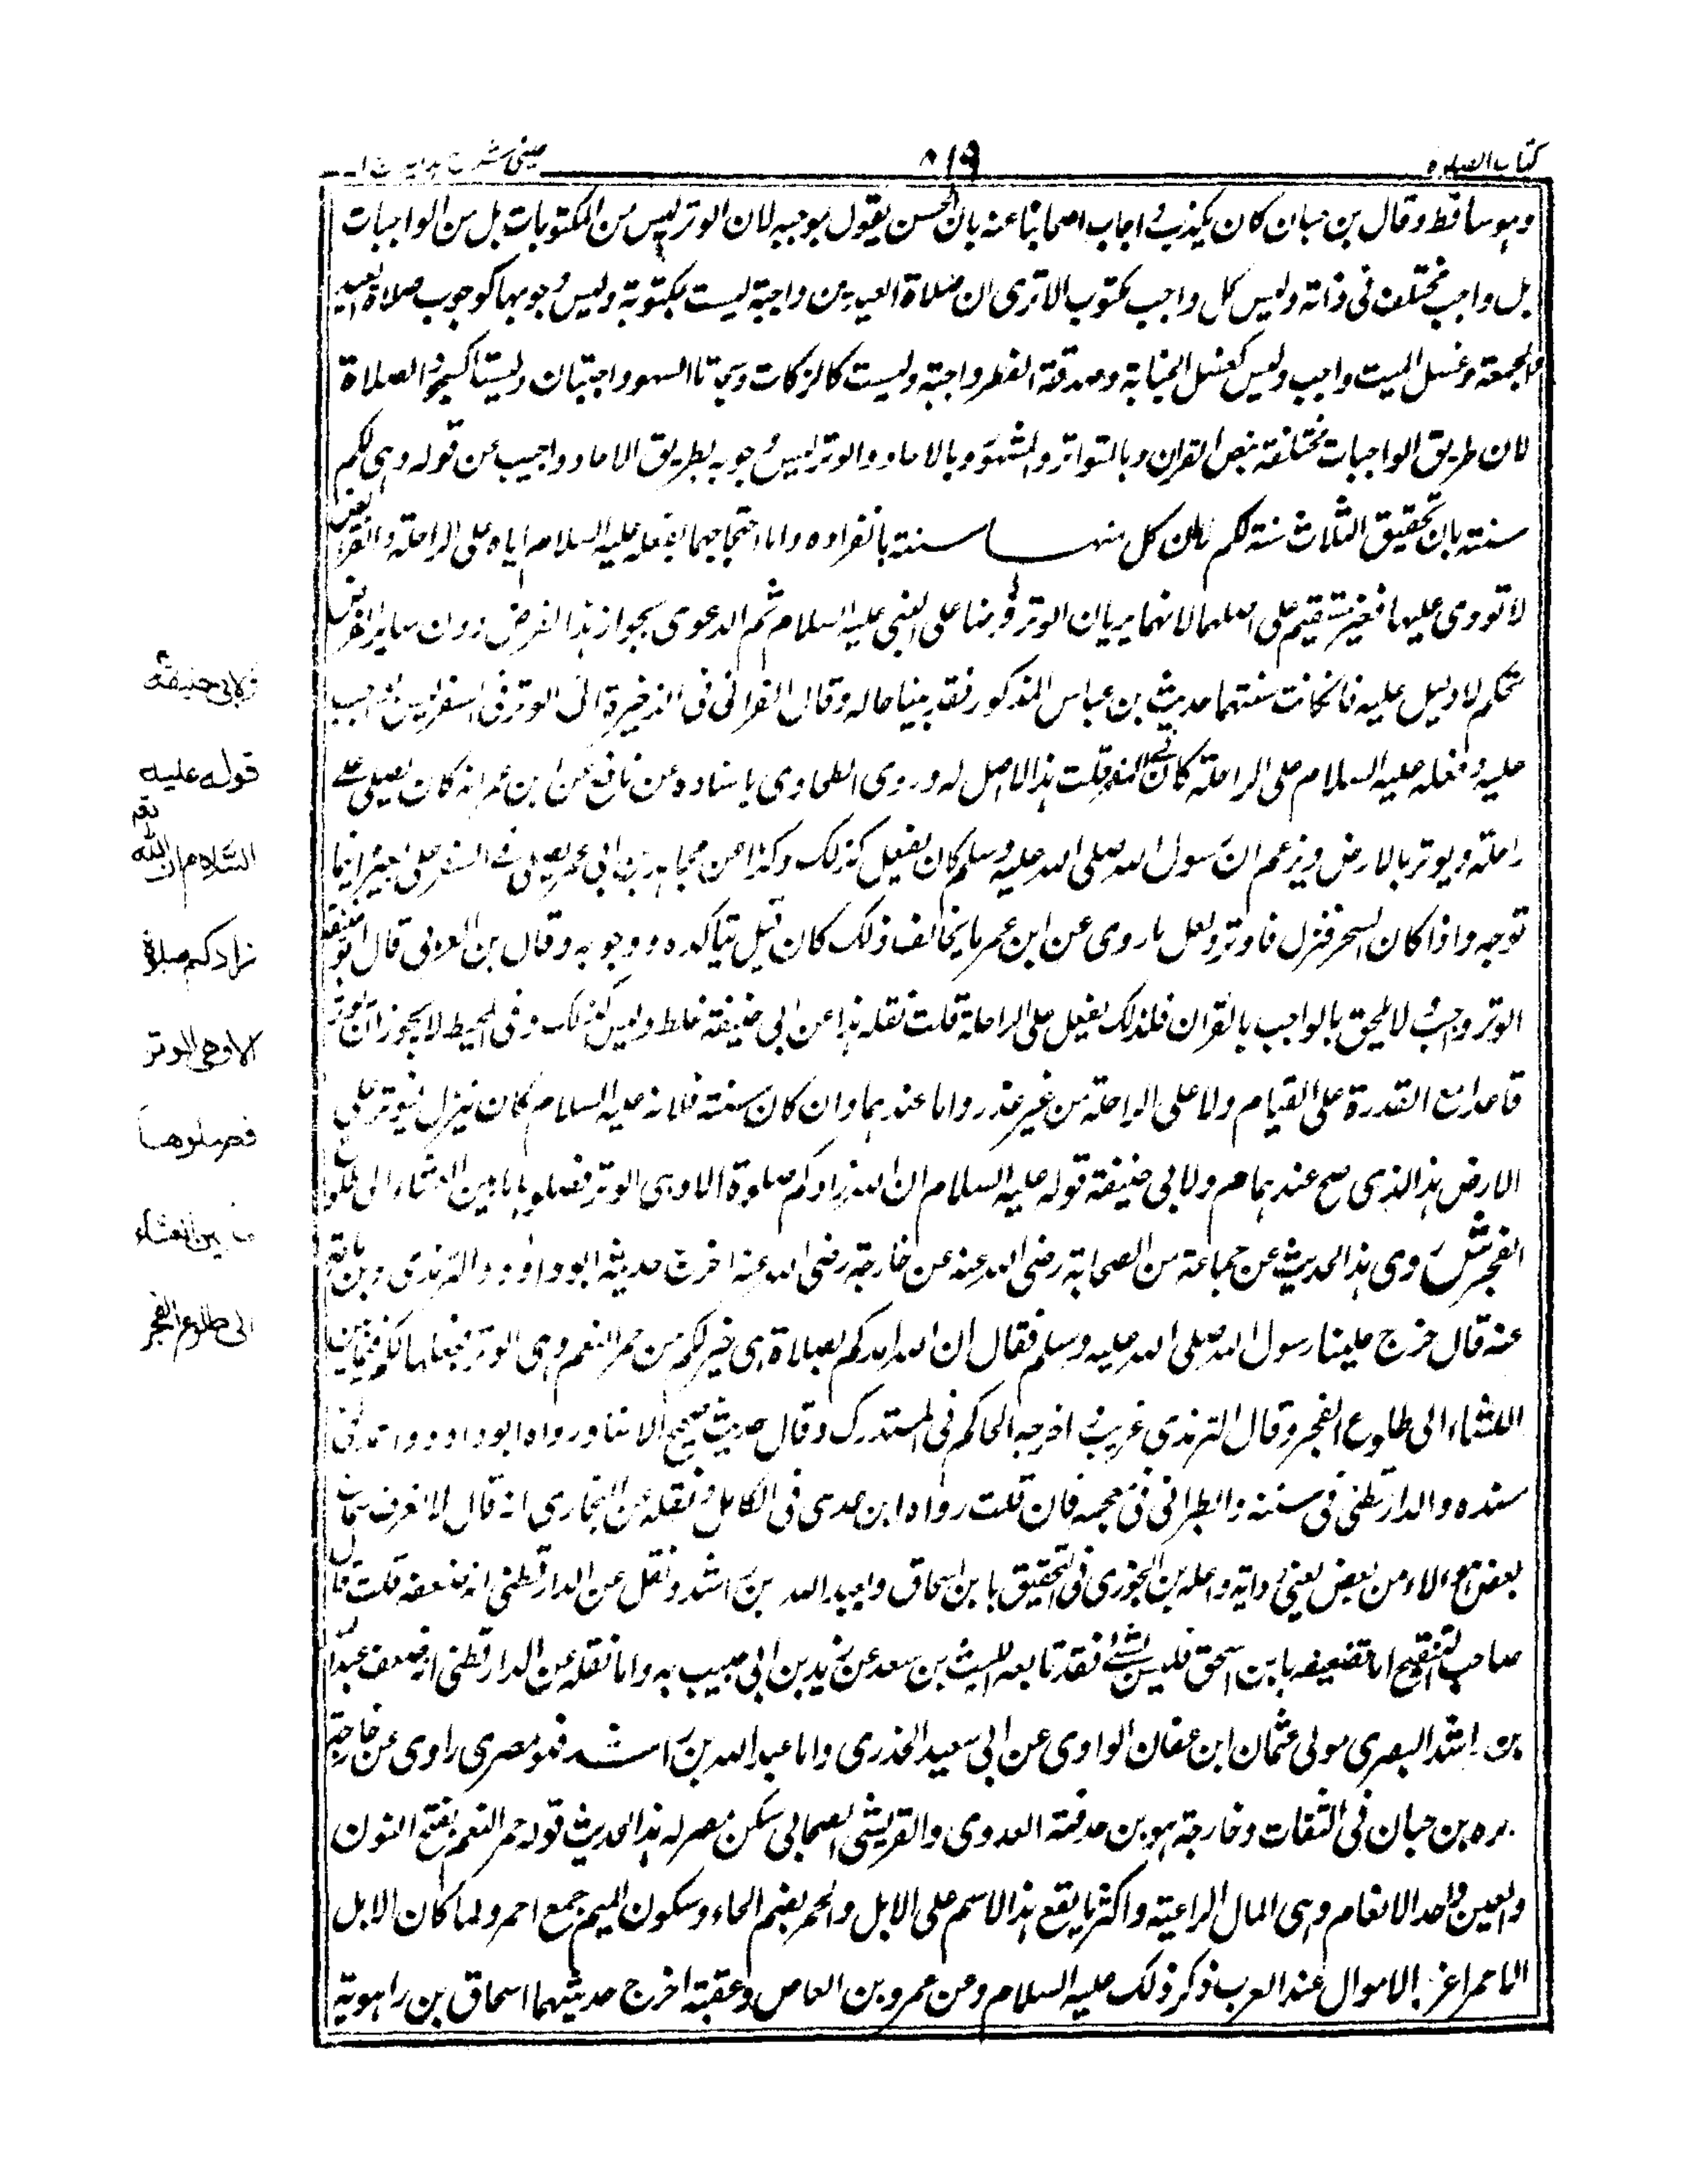 كتاب الصلاة
٨١٩
عينى شرح هداية ج ١
وهو ساقط وقال بن حبان كان يكذب واجاب اصحابنا عنه بان الحسن يقول بوجبه لان الوتر ليس من المكتوبات بل من الواجبات
بل واجب مختلف فى ذاته وليس كل واجب بمكتوب الا ترى ان صلاة العيدين واجبة ليست بمكتوبة وليس وجوبها كوجوب صلاة العيد
والجمعة وغسل الميت واجب وليس كغسل الجنابة وصدقة الفطر واجبة وليست كالزكات وسجدتا السهو واجبتان وليستا كسجود الصلاة
لان طريق الواجبات مختلفة بنص القران وبالتواتر والمشهور وبالاحاد والوتر ليس وجوبه بطريق الاحاد واجيب عن قوله وهى لكم
سنته بان تحقيق الثلاث سنة لكم لان كل منها سنته بانفراده واما احتجاجهما بفعله عليه السلام اياه على الراحلة والفرائض
لا تودى عليها فغير مستقيم على اصلهما لانهما يريان الوتر فرضا على النبى عليه السلام ثم الدعوى بجواز هذا الفرض دون ساير الفرائض
تحكم لا دليل عليه فانكانت سنتهما حديث بن عباس المذكور فقد بينا حاله وقال القرافى فى الذخيرة ان الوتر فى السفر ليس بواجب
عليه وفعله عليه السلام على الراحلة كان فى السفر قلت هذا لا اصل له وروى الطحاوى باسناده عن نافع عن ابن عمر انه كان يصلى على
راحلته ويوتر بالارض ويزعم ان رسول الله صلى الله عليه وسلم كان يفعل كذلك وكذا عن مجاهد بن ابى عمر يصلى فى السفر على بعيره اينما
توجه واذا كان السحر فنزل فاوتر ولعل ما روى عن ابن عمر ما يخالف ذلك كان قبل تاكده ووجوبه وقال بن العربى قال ابو حنيفة
الوتر وجب لا يلحق بالواجب بالقران فلذلك يفعل على الراحلة قلت نقله هذا عن ابى حنيفة غلط وليس كذلك وفى المحيط لا يجوز ان يوتر
قاعدا مع القدرة على القيام ولا على الراحلة من غير عذر واما عندهما وان كان سنته فلانه عليه السلام كان ينزل فيوتر على
الارض هذا الذى صح عندهما م ولابى حنيفة قوله عليه السلام ان الله زادكم صلوة الا وهى الوتر فصلوها ما بين العشاء الى طلوع
الفجر ش روى هذا الحديث عن جماعة من الصحابة رضى الله عنه عن خارجة رضى الله عنه اخرج حديثه ابو داود والترمذى وبن ماجة
عنه قال خرج علينا رسول الله صلى الله عليه وسلم فقال ان الله امدكم بصلاة هى خير لكم من حمر النعم وهى الوتر فجعلها لكم فيما بين
العشاء الى طلوع الفجر وقال الترمذى غريب اخرجه الحاكم فى المستدرك وقال حديث صحيح الاسناد ورواه ابو داود واحمد فى
مسنده والدارقطنى فى سننه والطبرانى فى معجمه فان قلت رواه ابن عدى فى الكامل ونقله عن البخارى انه قال لا نعرف سماع
بعض هؤلاء من بعض يعنى رواية واعله بن الجوزى فى التحقيق بابن اسحاق وبعبد الله بن راشد ونقل عن الدارقطنى انه ضعفه قلت قال
صاحب التنقيح اما تضعيفه بابن اسحق فليس بشئ فقد تابعه الليث بن سعد عن يزيد بن ابى حبيب به واما نقله عن الدارقطنى انه ضعف عبد الله
بن راشد البصرى مولى عثمان ابن عفان الراوى عن ابى سعيد الخدرى واما عبد الله بن راشد فهو مصرى راوى عن خارجة
ذكره بن حبان فى الثقات وخارجة هو بن حذفة العدوى والقريشى الصحابى سكن مصر له هذا الحديث قوله حمر النعم بفتح النون
والعين واحد الانعام وهى المال الراعية واكثر ما يقع هذا الاسم على الابل والحمر بضم الحاء وسكون الميم جمع احمر ولما كان الابل
الاحمر اعز الاموال عند العرب ذكر ذلك عليه السلام وعن عمرو بن العاص وعقبة اخرج حديثهما اسحاق بن راهوية
ولابى حنيفة
قوله عليه
السلام ان الله تعم
زادكم صلاة
الا وهى الوتر
فصلوها
ما بين العشاء
الى طلوع الفجر